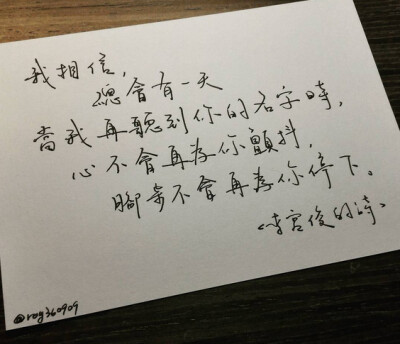 我相信，
總會有一天
當我再聽到你的名字時，
心不會再為你顫抖，
腳步不會再為你停下。
@roy360909